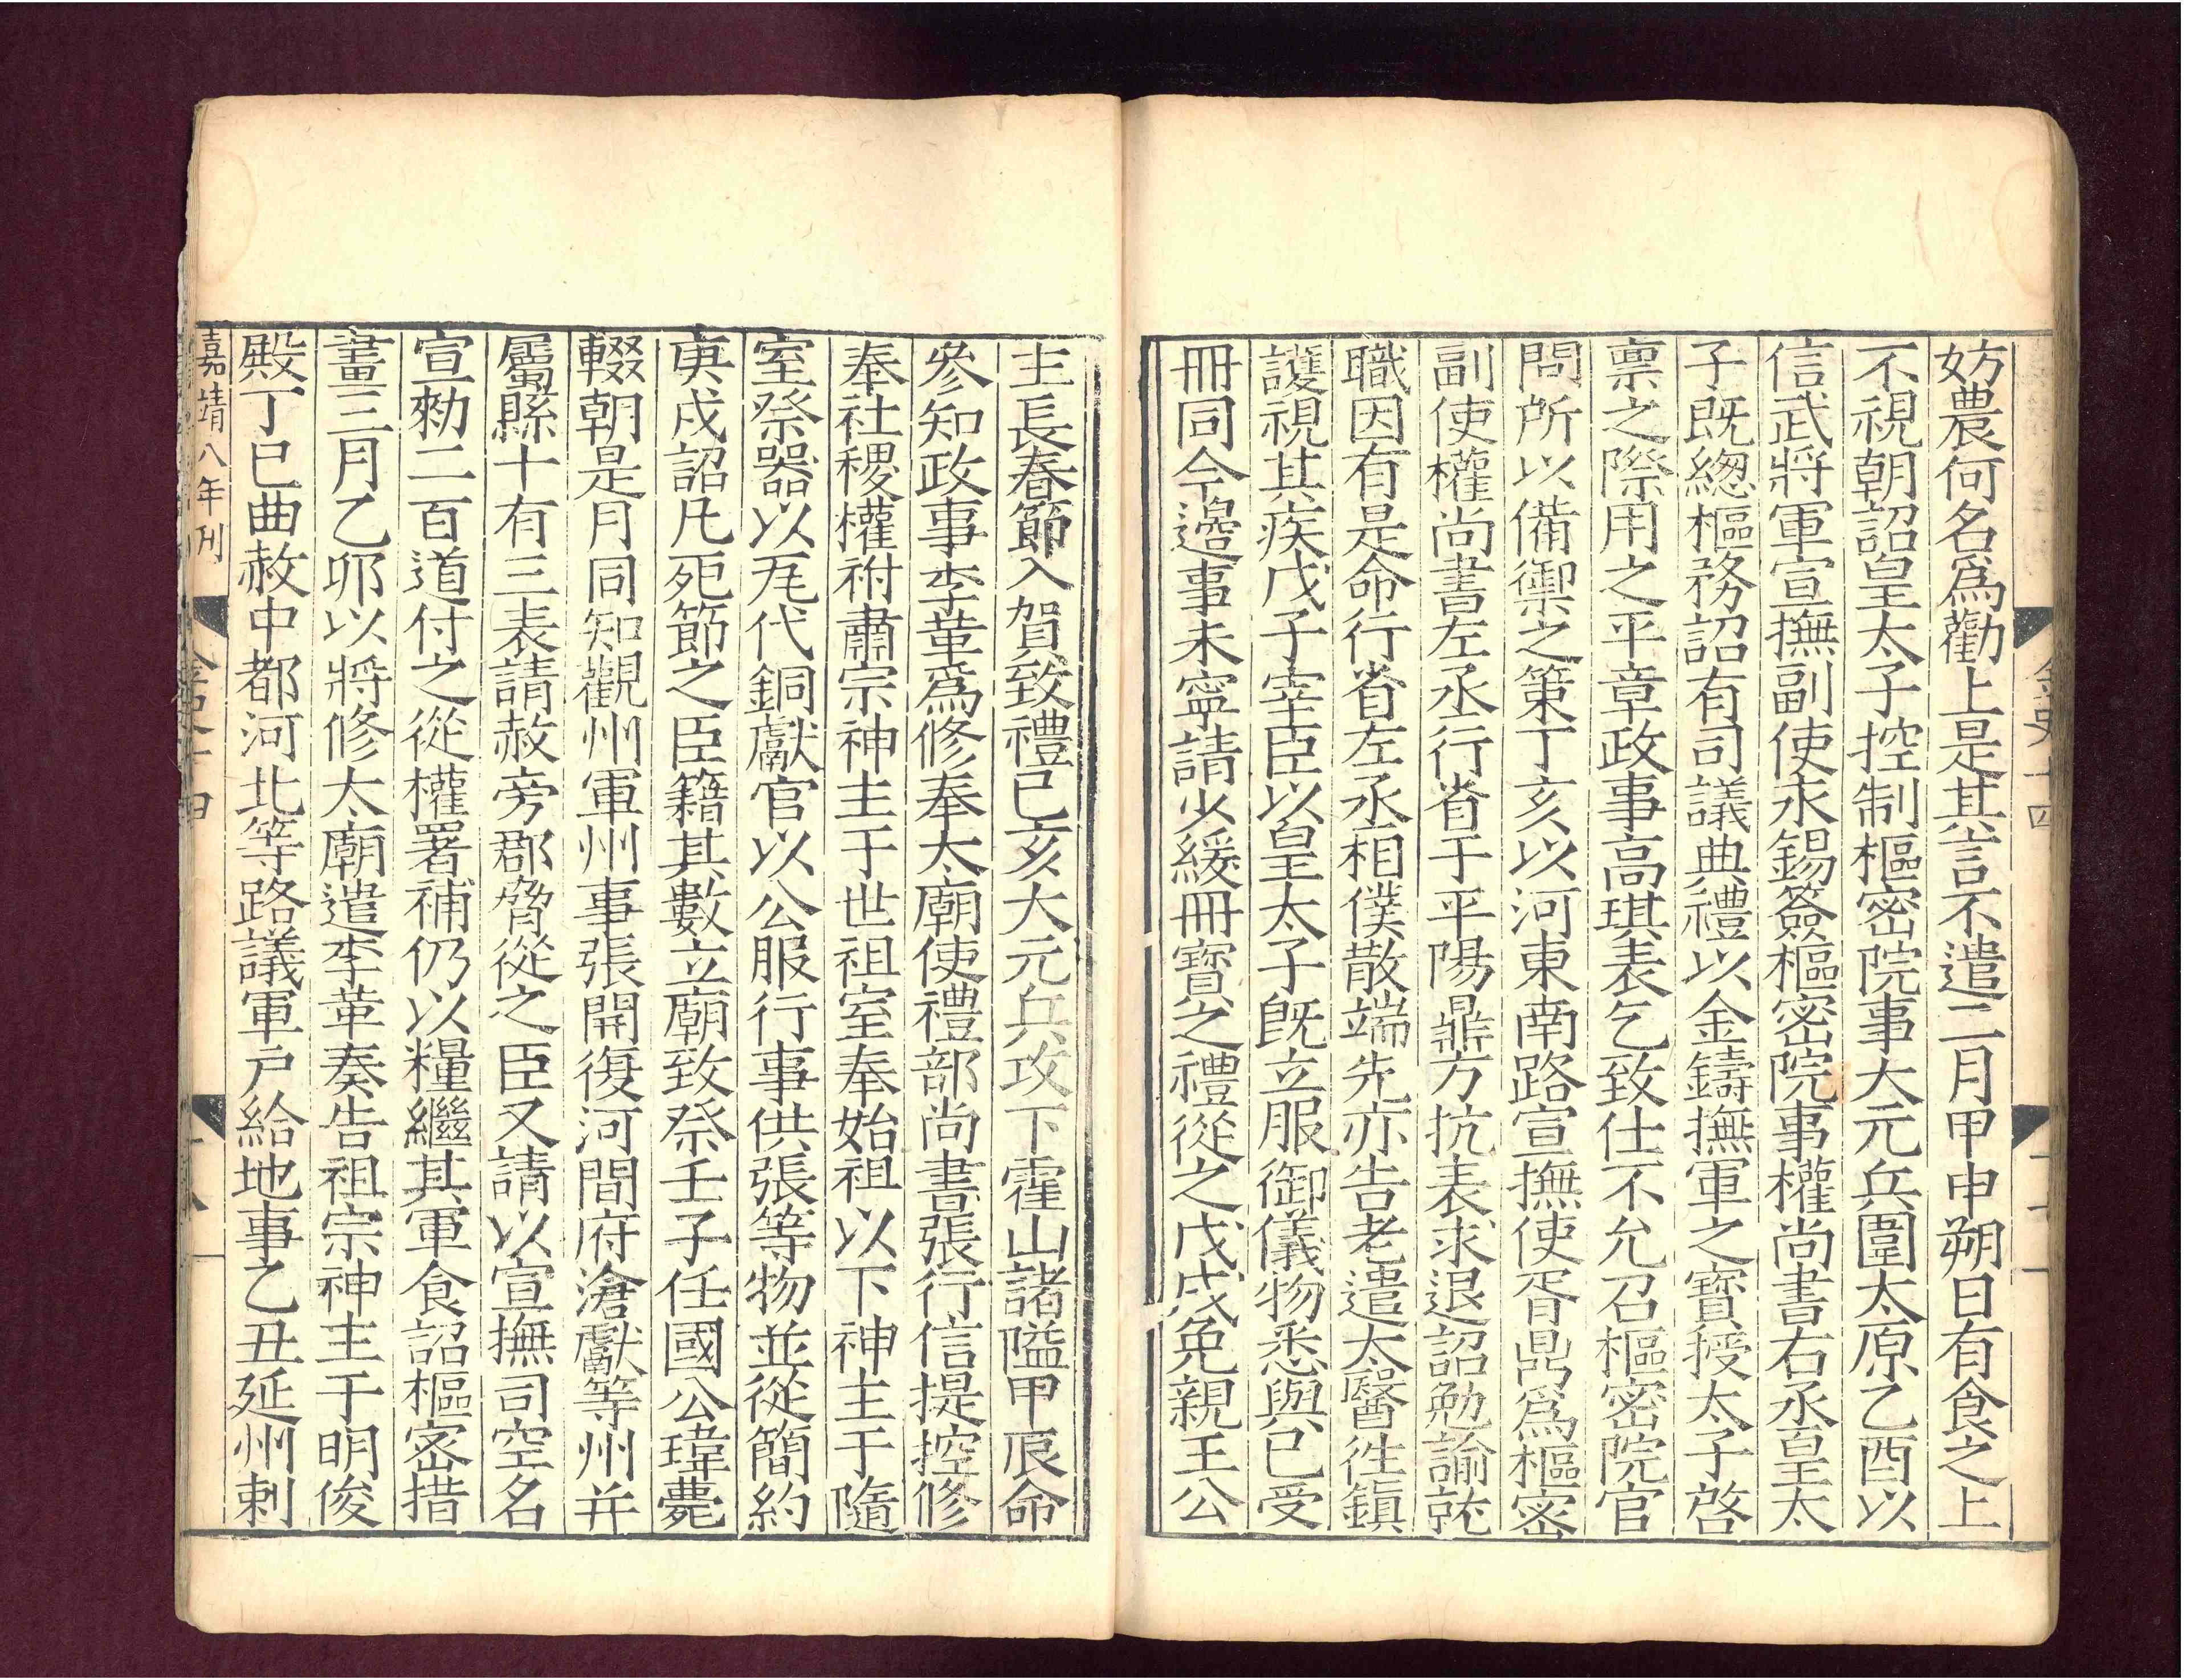 金史十四
妨農何名爲勸上是其言不遣二月甲申朔日有食之上
不視朝詔皇太子控制樞密院事大元兵圍太原乙酉以
信武將軍宣撫副使永錫簽樞密院事權尚書右丞皇太
子既緫樞務詔有司議典禮以金鑄撫軍之寶授太子啓
禀之際用之平章政事高琪表乞致仕不允召樞密院官
問所以備禦之策丁亥以河東南路宣撫使胥鼎爲樞密
副使權尚書左丞行省于平陽鼎方抗表求退詔勉諭就
職因有是命行省左丞相僕散端先亦告老遣太醫徃鎮
護視其疾戊子宰臣以皇太子既立服御儀物悉與已受
冊同今邉事未寧請少緩冊寶之禮從之戊戌免親王公
主長春節入賀致禮已亥大元兵攻下霍山諸隘甲辰命
參知政事李革爲修奉太廟使禮部尚書張行信提控修
奉社稷權祔肅宗神主于世祖室奉始祖以下神主于隨
室祭器以瓦代銅獻官以公服行事供張等物並從簡約
庚戌詔凡死節之臣籍其數立廟致祭壬子任國公瑋薨
輟朝是月同知觀州軍州事張開復河間府滄獻等州并
屬縣十有三表請赦旁郡脅從之臣又請以宣撫司空名
宣勑二百道付之從權署補仍以糧繼其軍食詔樞密措
畫三月乙夘以將修太廟遣李革奏告祖宗神主于明俊
殿丁巳曲赦中都河北等路議軍戶給地事乙丑延州刺
嘉靖八年刊
金史十四